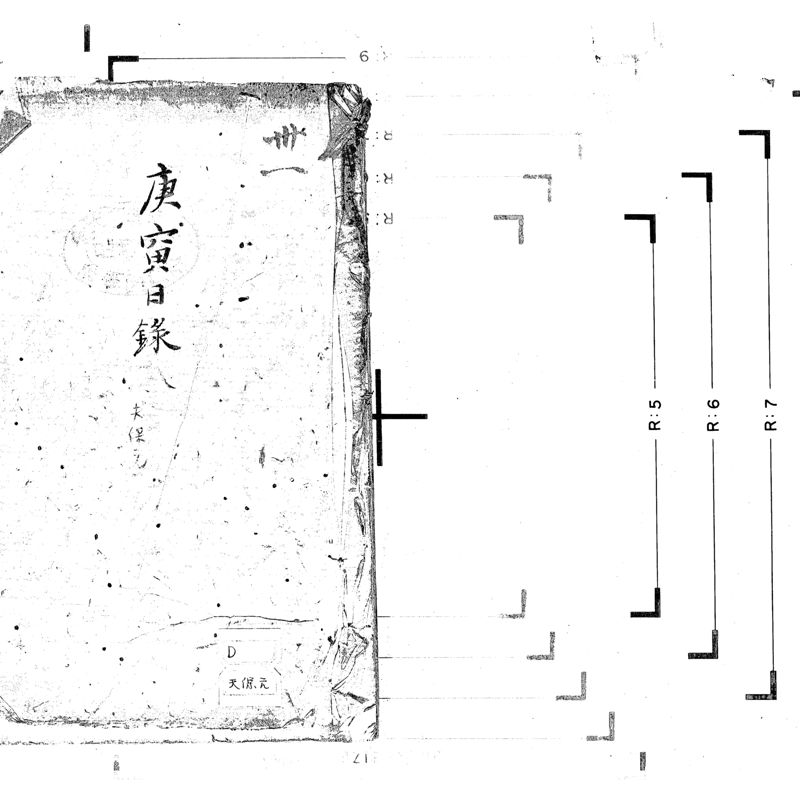 卅一
庚寅日錄
天保元
D
天保元
9
R:5
R:6
R:7
17